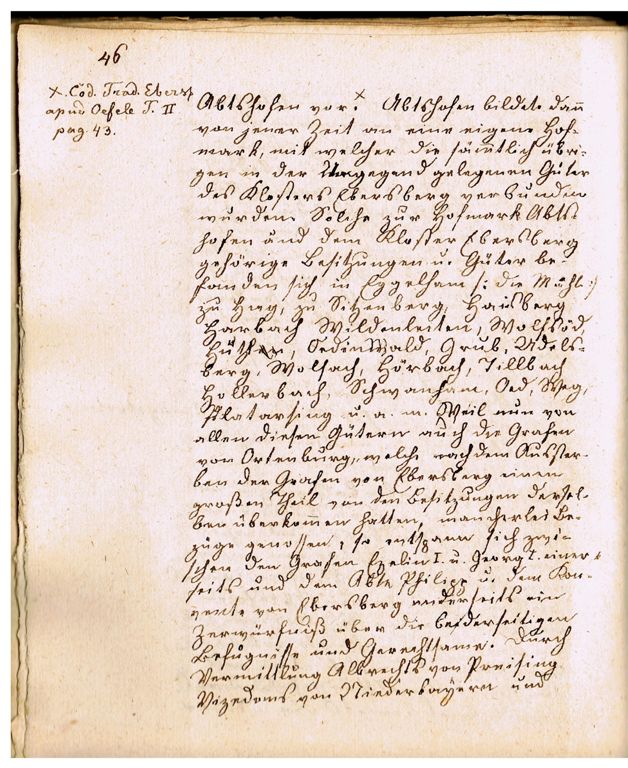 46
x. Cod. Trad. Ebersp
apud Oefele T. II
pag. 43.
Abtshofen vor. x Abtshofen bildete dann
von jener Zeit an eine eigene Hof-
mark, mit welcher die sämtlich übri-
gen in der Umgegend gelegenen Güter
des Klosters Ebersberg verbunden
wurden. Solche zur Hofmark Abts-
hofen und dem Kloster Ebersberg
gehörige Besitzungen u. Güter be-
fanden sich in Eggelham /: die Mühl :/
zu Hag, zu Sitzenberg, Hausberg
Harbach Wildenleiten, Wolfsöd,
Oedinwald, Grub, Udels-
berg, Wolfach, Hörbach, Tillbach
Hollerbach, Schwanham, Oed, Weg,
Pilatarsing u. a. m. Weil nun von
allen diesen Gütern auch die Grafen
von Ortenburg, welche nach dem Ausster-
ben der Grafen von Ebersberg einen
großen Theil von den Besitzungen dersel-
ben überkommen hatten, mancherlei Be-
züge genossen, so entspann sich zwi-
schen den Grafen Ezelin I. u. Georg I. einer-
seits und dem Abte Philipp u. dem Kon-
vente von Ebersberg anderseits ein
Zerwürfniß über die beiderseitigen
Befugnisse und Gerechtsame. Durch
Vermittlung Albrechts von Preising
Vizedoms von Niederbayern und